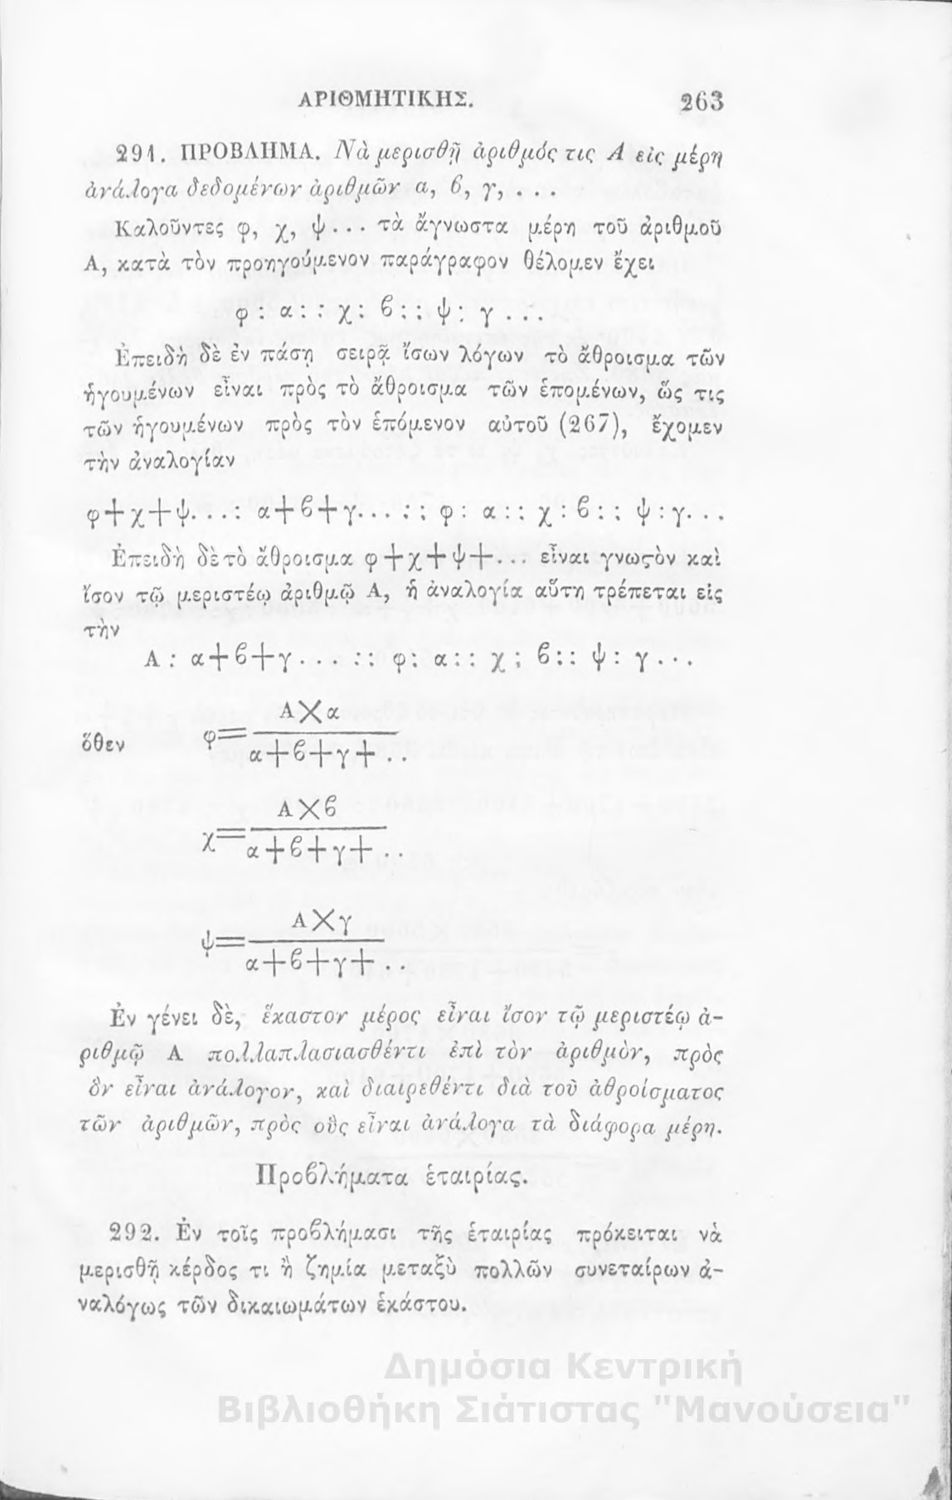 ΑΡΙΘΜΗΤΙΚΗΣ. 263
291. ΠΡΟΒΛΗΜΑ. Νὰ μερισθῇ ἀριθμός τις Α εἰς μέρη
ἀνάλογα δεδομένων ἀριθμῶν α, ϐ, γ, . . .
Καλοῦντες φ, χ, ψ . . . τὰ ἄγνωστα μέρη τοῦ ἀριθμοῦ
Α, κατὰ τὸν προηγούμενον παράγραφον θέλομεν ἔχει
φ : α : : χ : ϐ : : ψ : γ . . .
Ἐπειδὴ δὲ ἐν πάσῃ σειρᾷ ἴσων λόγων τὸ ἄθροισμα τῶν
ἡγουμένων εἶναι πρὸς τὸ ἄθροισμα τῶν ἑπομένων, ὥς τις
τῶν ἡγουμένων πρὸς τὸν ἑπόμενον αὐτοῦ (267), ἔχομεν
τὴν ἀναλογίαν
φ+χ+ψ. . . : α+ϐ+γ. . . : : φ : α : : χ : ϐ : : ψ : γ. . .
Ἐπειδὴ δὲ τὸ ἄθροισμα φ+χ+ψ+. . . εἶναι γνωϛὸν καὶ
ἴσον τῷ μεριστέῳ ἀριθμῷ Α, ἡ ἀναλογία αὕτη τρέπεται εἰς
τὴν
Α : α+ϐ+γ. . . : : φ : α : : χ : ϐ : : ψ : γ. . .
Α×α
ὅθεν φ=
α+ϐ+γ+ . .
Α×ϐ
χ=
α+ϐ+γ+ . .
Α×γ
ψ=
α+ϐ+γ+ . .
Ἐν γένει δὲ, ἕκαστον μέρος εἶναι ἴσον τῷ μεριστέῳ ἀ-
ριθμῷ Α πολλαπλασιασθέντι ἐπὶ τὸν ἀριθμὸν, πρὸς
ὃν εἶναι ἀνάλογον, καὶ διαιρεθέντι διὰ τοῦ ἀθροίσματος
τῶν ἀριθμῶν, πρὸς οὓς εἶναι ἀνάλογα τὰ διάφορα μέρη.
Προϐλήματα ἑταιρίας.
292. Ἐν τοῖς προϐλήμασι τῆς ἑταιρίας πρόκειται νὰ
μερισθῇ κέρδος τι ἢ ζημία μεταξὺ πολλῶν συνεταίρων ἀ-
ναλόγως τῶν δικαιωμάτων ἑκάστου.
Δημόσια Κεντρική
Βιβλιοθήκη Σιάτιστας "Μανούσεια"